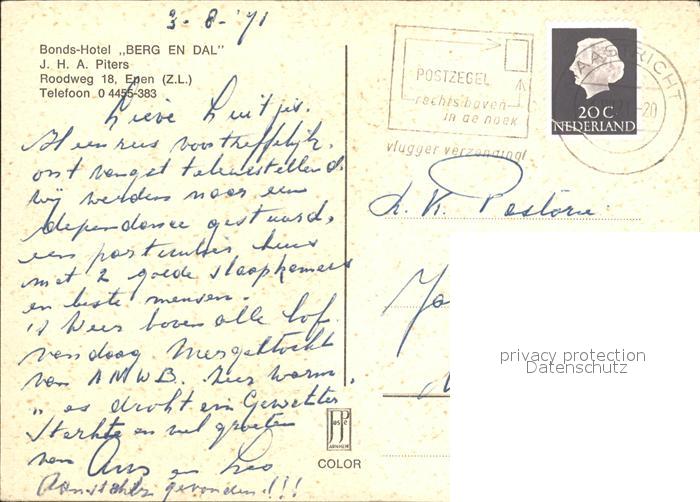 3-8-'71
Bonds-Hotel „BERG EN DAL"
J. H. A. Piters
Roodweg 18, Epen (Z.L.)
Telefoon 0 4455-383
Lieve Luitjes.
Heenreis voortreffelijk.
ontvangst teleurstellend.
wij werden naar een
dependance gestuurd,
een particulier huis
met 2 goede slaapkamers
en beste mensen.
't Weer boven alle lof.
vandaag Mergeltocht
van ANWB. Zeer warm
„es droht ein Gewitter
Sterkte en veel groeten
van Ans en Leo
gevonden!!!
POSTZEGEL
rechts boven
in de hoek
vlugger verzending!
MAASTRICHT
20 C
NEDERLAND
Pastorie
privacy protection
Datenschutz
JosPe
ARNHEM
COLOR